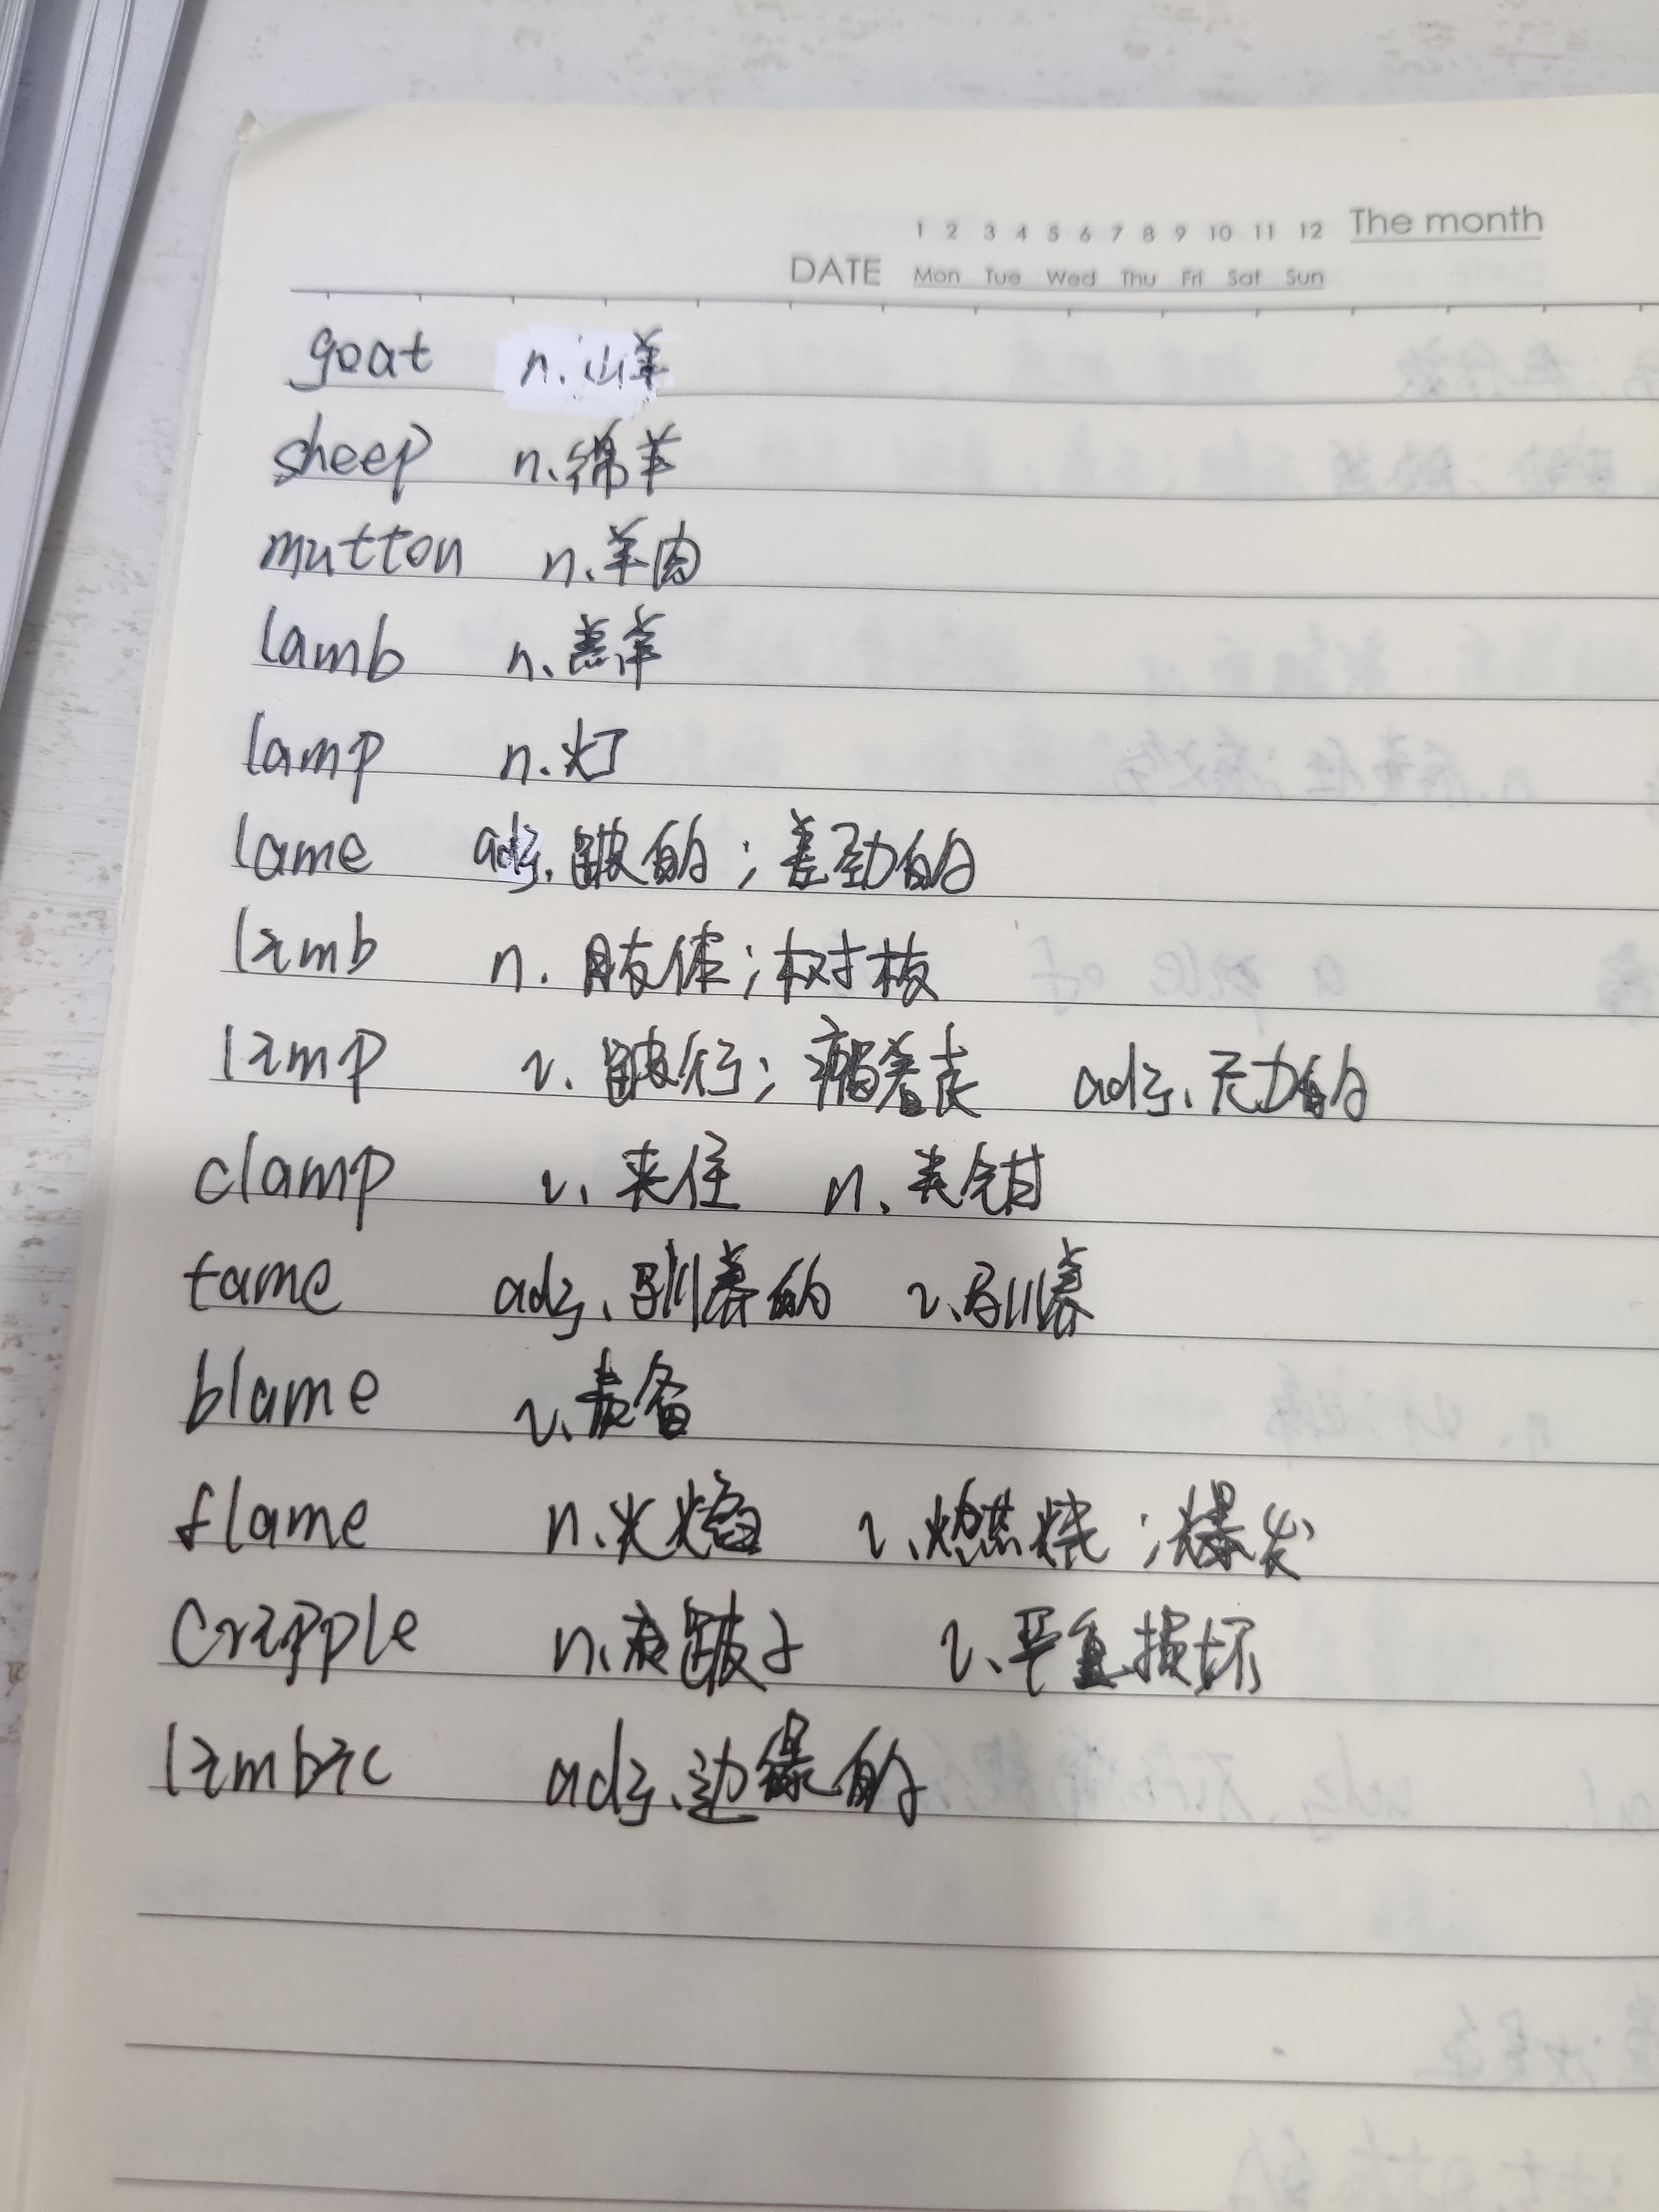 1 2 3 4 5 6 7 8 9 10 11 12 The month
DATE Mon Tue Wed Thu Fri Sat Sun
goat n. 山羊
sheep n. 绵羊
mutton n. 羊肉
lamb n. 羔羊
lamp n. 灯
lame adj. 跛的; 差劲的
limb n. 肢体; 树枝
limp v. 跛行; 瘸着走 adj. 无力的
clamp v. 夹住 n. 夹钳
tame adj. 驯养的 v. 驯养
blame v. 责备
flame n. 火焰 v. 燃烧; 爆发
cripple n. 跛子 v. 严重损坏
limbic adj. 边缘的